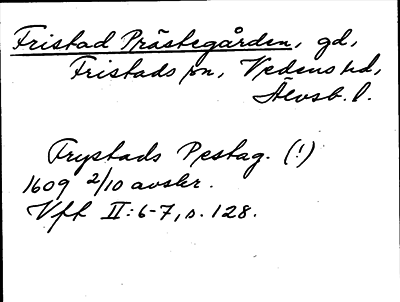 Fristad Prästegården, gd,
Fristads sn, Vedens hd,
Älvsb. l.
Frystads Pestag. (!)
1609 2/10 avskr.
Vft II:6-7, s. 128.